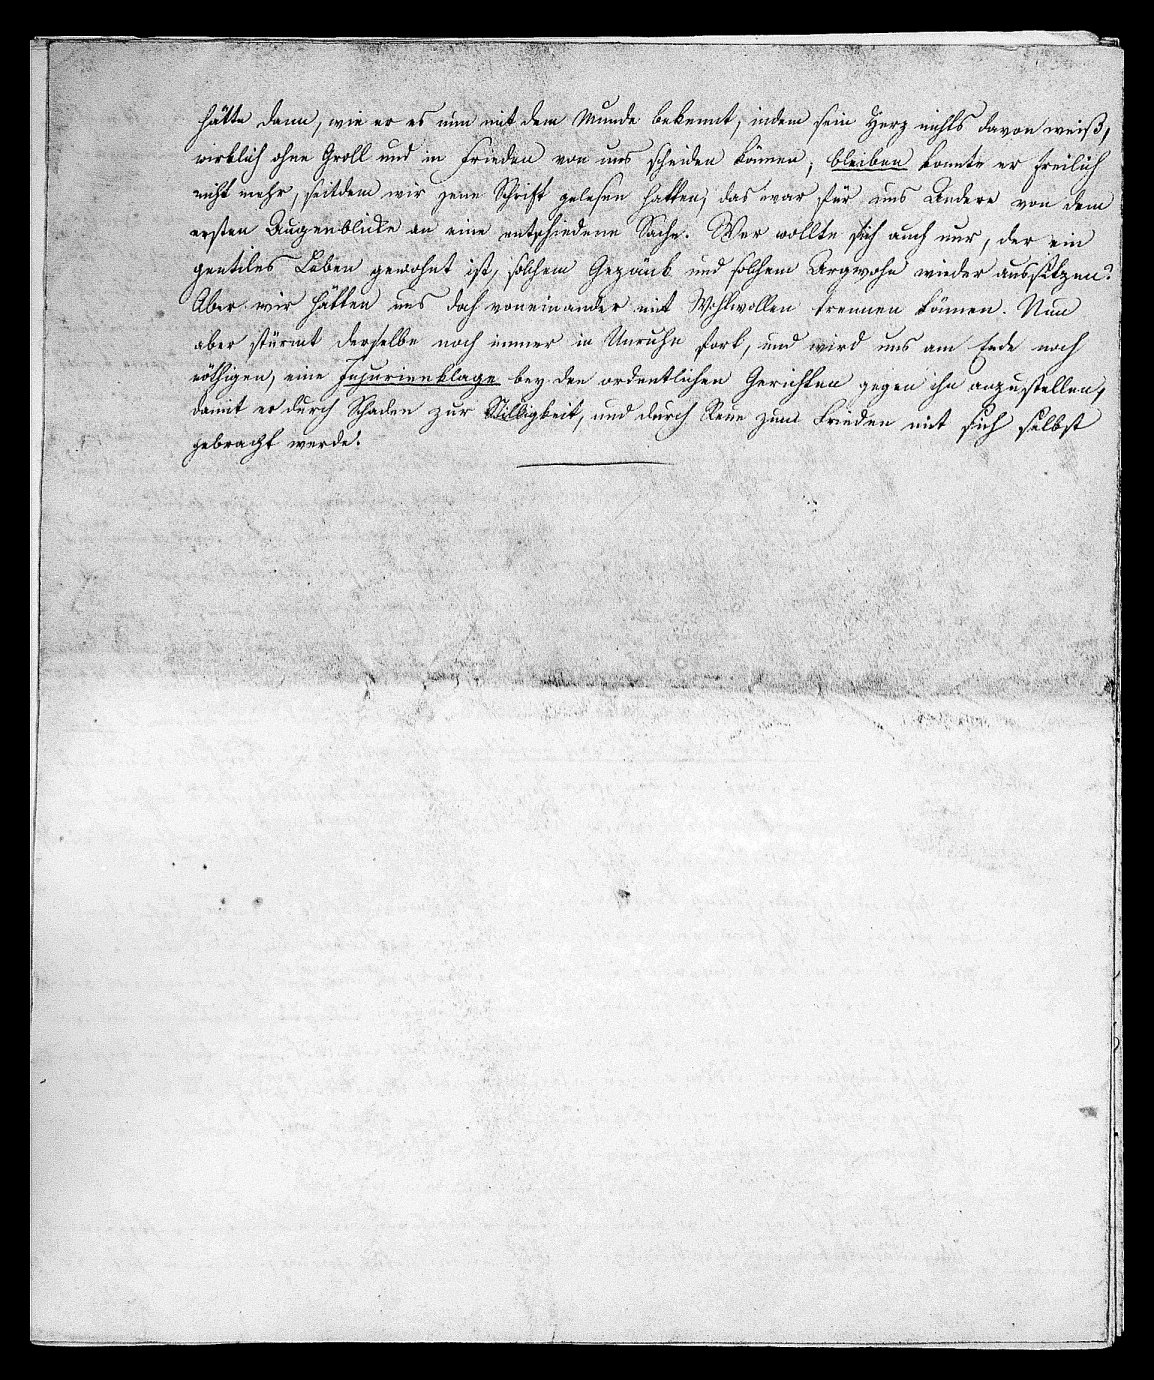 hätte dann, wie er es nun mit dem Munde bekennt, indem sein Herz nichts davon weiß,
wirklich ohne Groll und in Frieden von uns scheiden können; bleiben konnte er freilich
nicht mehr, seitdem wir jene Schrift gelesen hatten; das war für uns Andere von dem
ersten Augenblicke an eine entschiedene Sache. Wer wollte sich auch nur, der ein
gentiles Leben gewohnt ist, solchem Gezänk und solchem Argwohn wieder aussetzen?
Aber wir hätten uns doch voneinander mit Wohlwollen trennen können. Nun
aber stürmt derselbe noch immer in Unruhe fort, und wird uns am Ende noch
nöthigen, eine Injurienklage bey den ordentlichen Gerichten gegen ihn anzustellen,
damit er durch Schaden zur Billigkeit, und durch Reue zum Frieden mit sich selbst
gebracht werde.